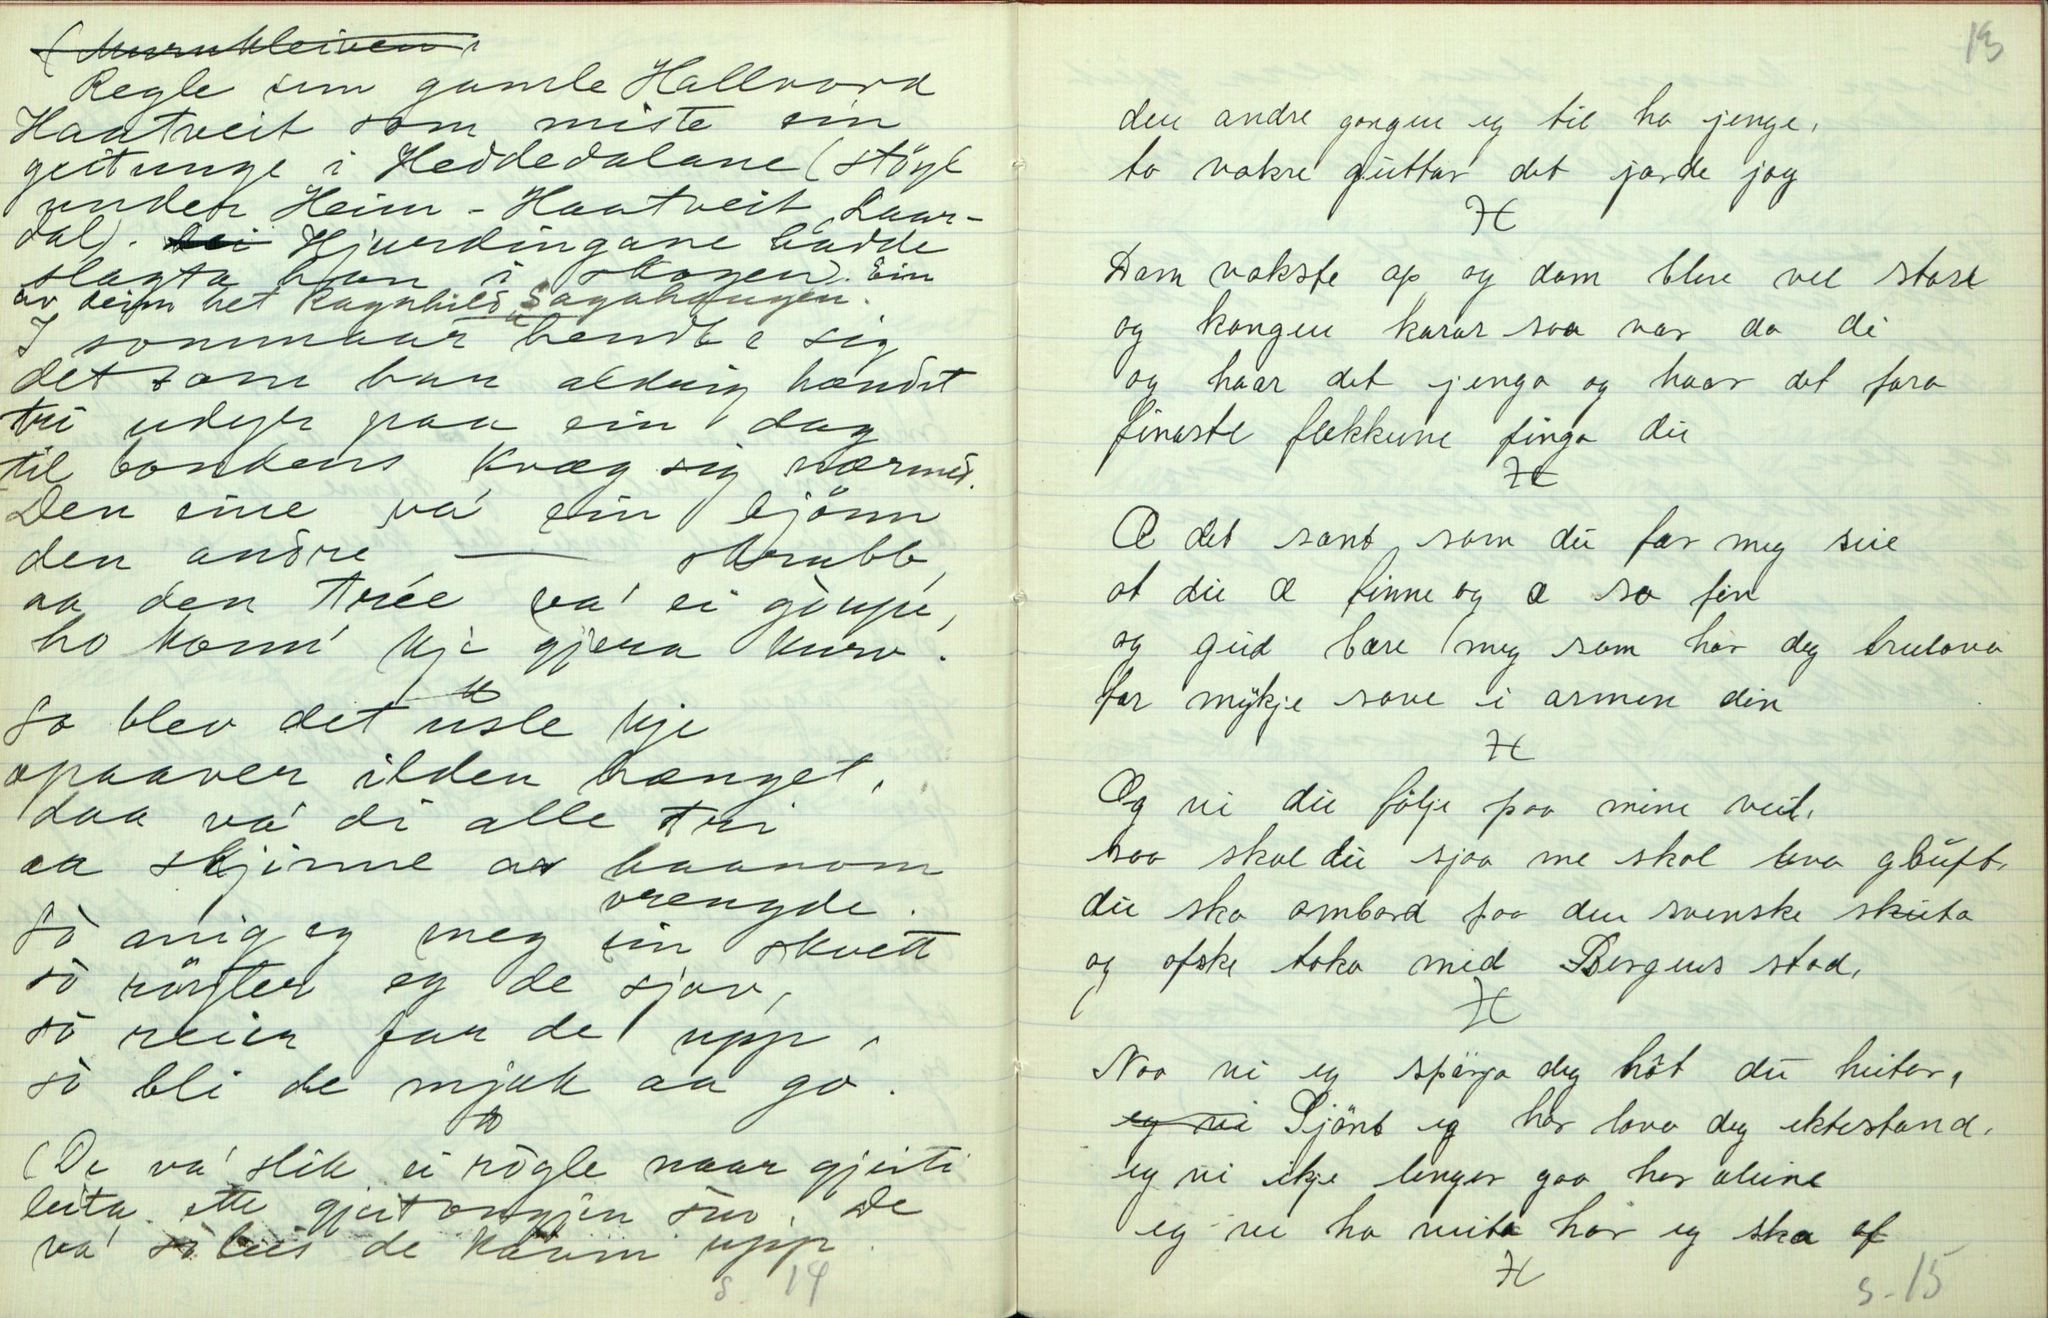 (Murukleiven)
Regle um gamle Hallvord
Haatveit som miste ein
geitunge i Heddedalane (stöyl
under Heim-Haatveit, Laar-
dal). Dei Hjuringane hadde
slagta han i skogen). Ein
av deim het Ragnhild Sagahaugen.
I sommaar hendte sig
det som han aldrig hændt
tri udyr paa ein dag
til bondens kvæg sig nærmed.
Den eine va' ein bjönn
den andre — skrubb,
aa den trée va' ei göupe,
ho konn' kje gjera kurv.
So blev det usle kje
opaaver ilden hænget,
daa va' di alle tri
aa skjinne av haanom
vrengde.
Sò anig eg meg ein skvett
sò röyster eg de sjav,
sò reier far de upp,
sò bli de mjuk aa go.
(De va' slik ei rögle naar gjeiti
leita ette gjeitongjen sin. De
va' sò leis de kaam upp.
s. 14
13
den andre gongen eg til ho jenge,
to vakre guttar det jorde jog
Dom vokste op og dom bleve vel store
og kongen karar soa var do di
og haar det jenga og haar det fara
finaste flekkune finga dii
Æ det sant som du for meg seie
at du æ finne og æ so fin
og gud bære meg som har deg trulova
for mykje sove i armen din
Og vi du följe paa mine veit,
soa skal du sjaa me skal leva gluft,
du ska ombord paa den svenske skuta
og ofske toka med Bergens stad,
Noa vi eg spörja deg höt du heiter,
eg vi Sjönt eg har lova deg ektestand,
eg vi ikje lenger gaa her aleine
eg vi ha veita hor eg ska af
s. 15